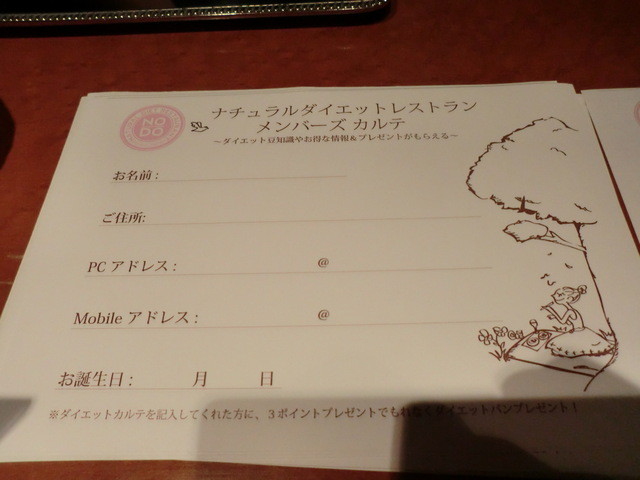 NO
DO
ナチュラルダイエットレストラン
メンバーズ カルテ
～ダイエット豆知識やお得な情報＆プレゼントがもらえる～
お名前：
ご住所:
PC アドレス： @
Mobile アドレス： @
お誕生日： 月 日
※ダイエットカルテを記入してくれた方に、３ポイントプレゼントでもれなくダイエットパンプレゼント！